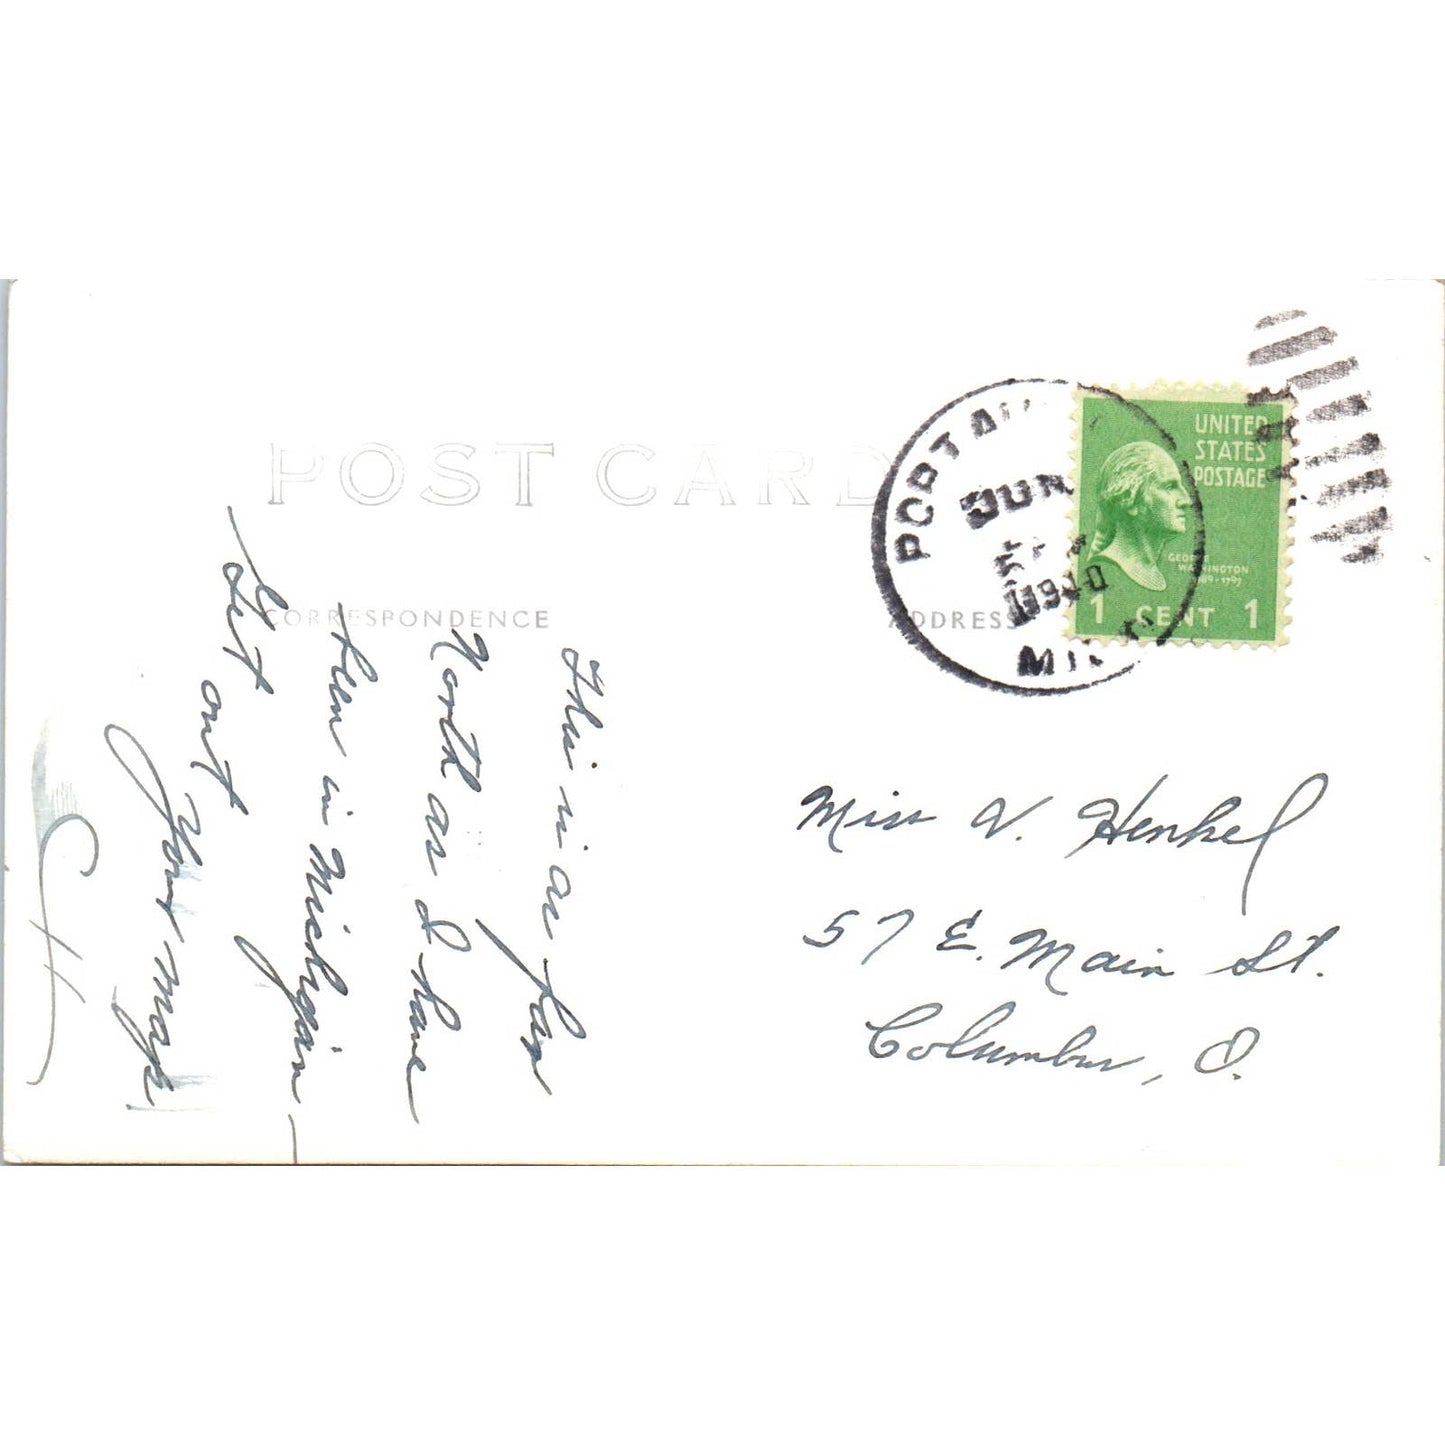 POST CARD
CORRESPONDENCE
ADDRESS
JUN
1940
UNITED
STATES
POSTAGE
GEORGE
WASHINGTON
1 CENT 1
This is as far
North as I have
been in Michigan
Get out
your map!
Miss V. Henkel
57 E. Main St.
Columbus, O.